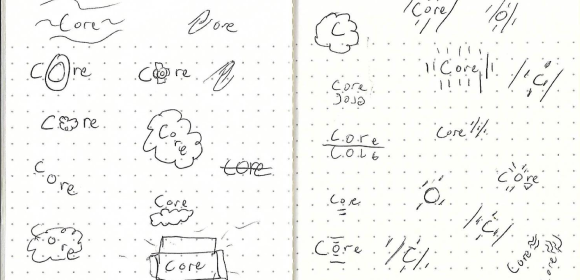 Core
ore
Core
Core
Core
Core
Core
Core
Core
Core
Core
Core
C
Core
C.o.r.e
Core
Core
Core
O
Core
C
Core
Core
O
C
C
Core
Core